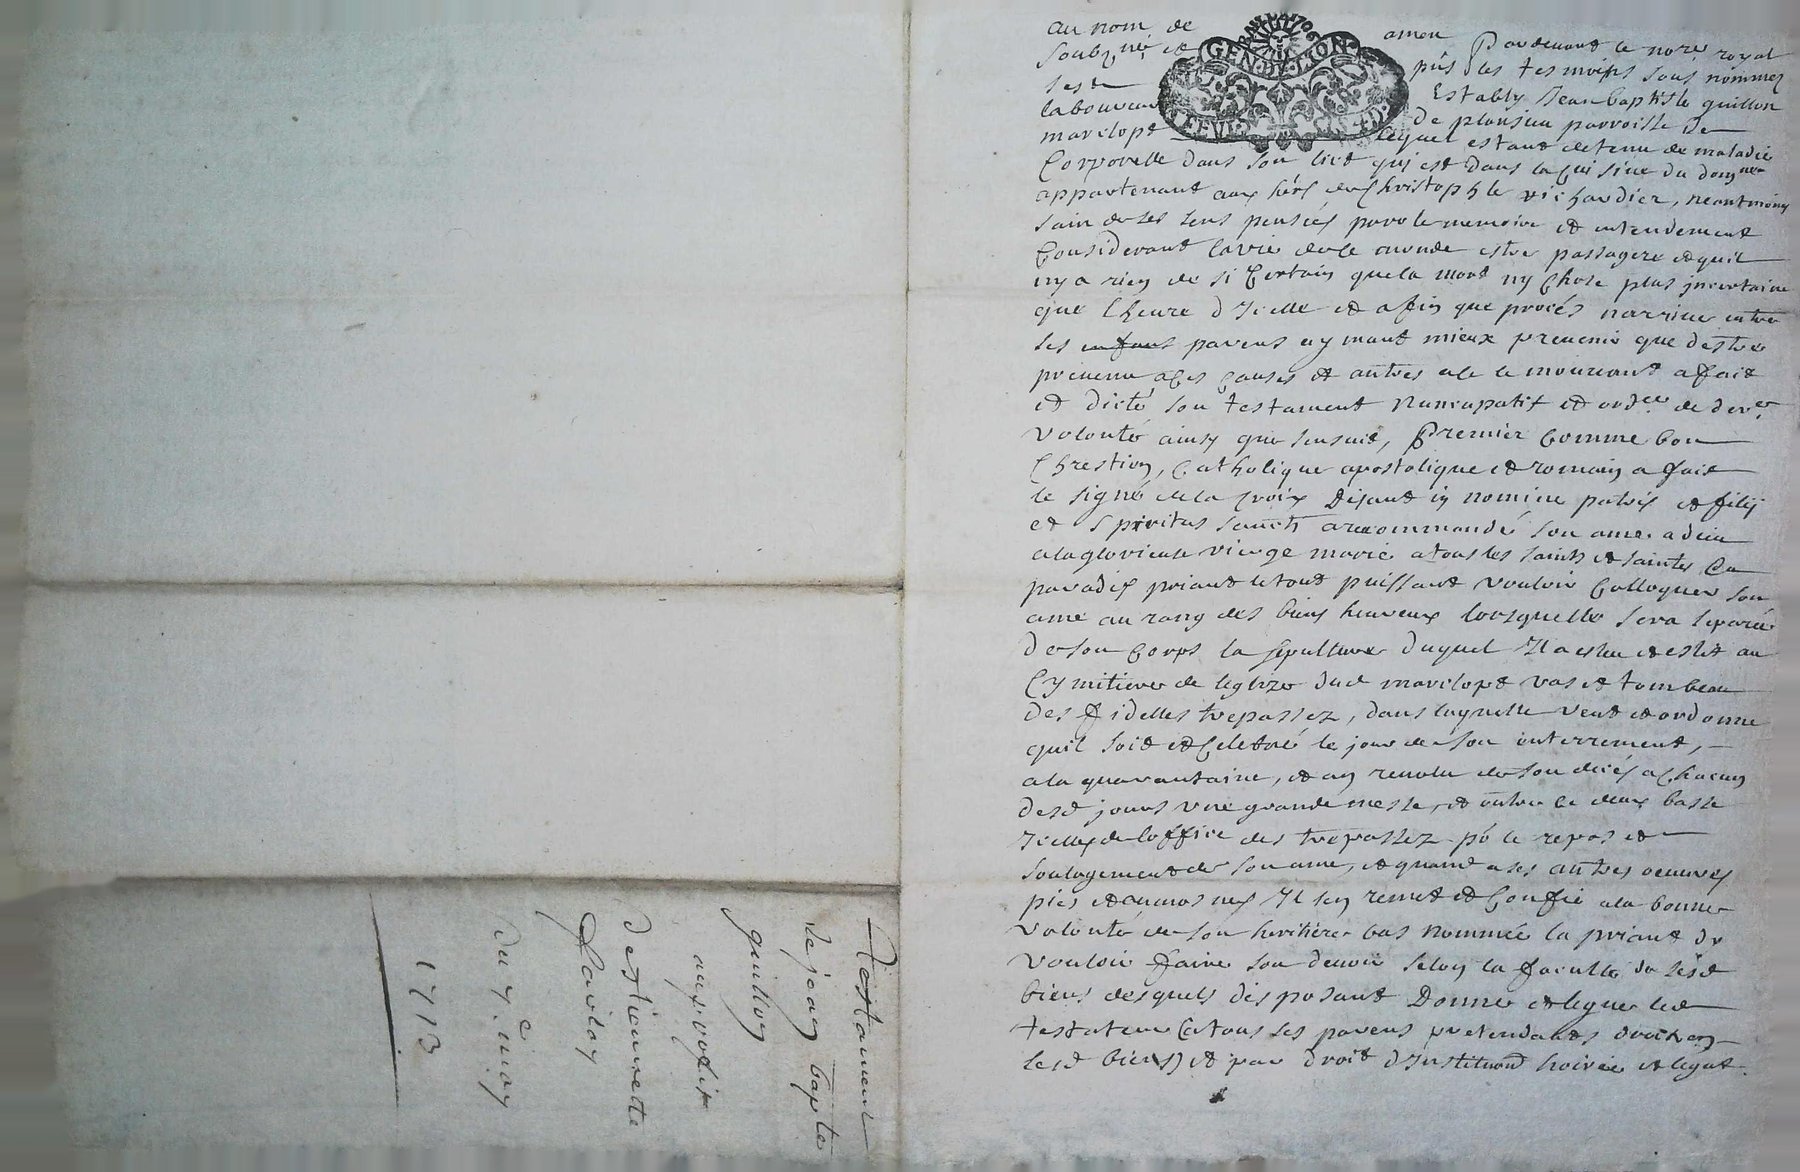 au nom de amen Pardevant le no.re royal
soubz.né et pnts les tesmoins sous nommez
sest Estably Jean baptiste guillon
laboureur de plansu parroisse de
marclopt lequel estant detenu de maladie
Corporelle dans son lict quj est dans la cuisine du domne
appartenant aux hérs de Christophle richardier, neantmoins
sain de ses sens pensées parole memoire et entendement
Considerant la vie de ce monde estre passagere et quil
ny a rien de si Certain que la mort ny Chose plus jncertaine
que lheure dJcelle et afin que procés narrive entre
ses enfans parens aymant mieux prevenir que destre
prevenu a Ces Causes et autres ale le mouvant a fait
et dicté son testament Nuncupatif et ord.ce de der.e
volonté ainsy que sensuit, Premier Comme bon
Chrestien, Catholique apostolique et romain a fait
le signe de la Croix Disant in nomine patris et filij
et spiritus sancti a recommandé son ame a dieu
a la glorieuse vierge marie a tous les saints et saintes du
paradis priant le tout puissant vouloir Colloquer son
ame au rang des biens heureux lorsquelle sera separée
de son Corps la sepulture duquel Jl a esleu et eslit au
Cymitiere de leglize dud marclopt vas et tombeau
des fidelles trepassez, dans laquelle veut et ordonne
quil soit et Celebré le jour de son enterrement,
a la quarantaine, et an revolu de son decés a chacun
desd jours une grande messe, et outre ce deux basse
Jcelles de loffice des trepassez po.r le repos et
soulagement de son ame, et quant a ses autres oeuvres
pies et aumosnes Jl sen remet et Confie a la bonne
volonté de son heritiere bas nommée la priant de
vouloir faire son devoir selon la faculté de sesd
biens desquels disposant Donne et legue led
testateur a tous ses parens pretendants droit en
sesd biens et par droit dJnstitution hoirie et legat
Testament
de jean bapte
guillon
au profit
destiennette
favier
du 7.e may
1713
GEN DE LION